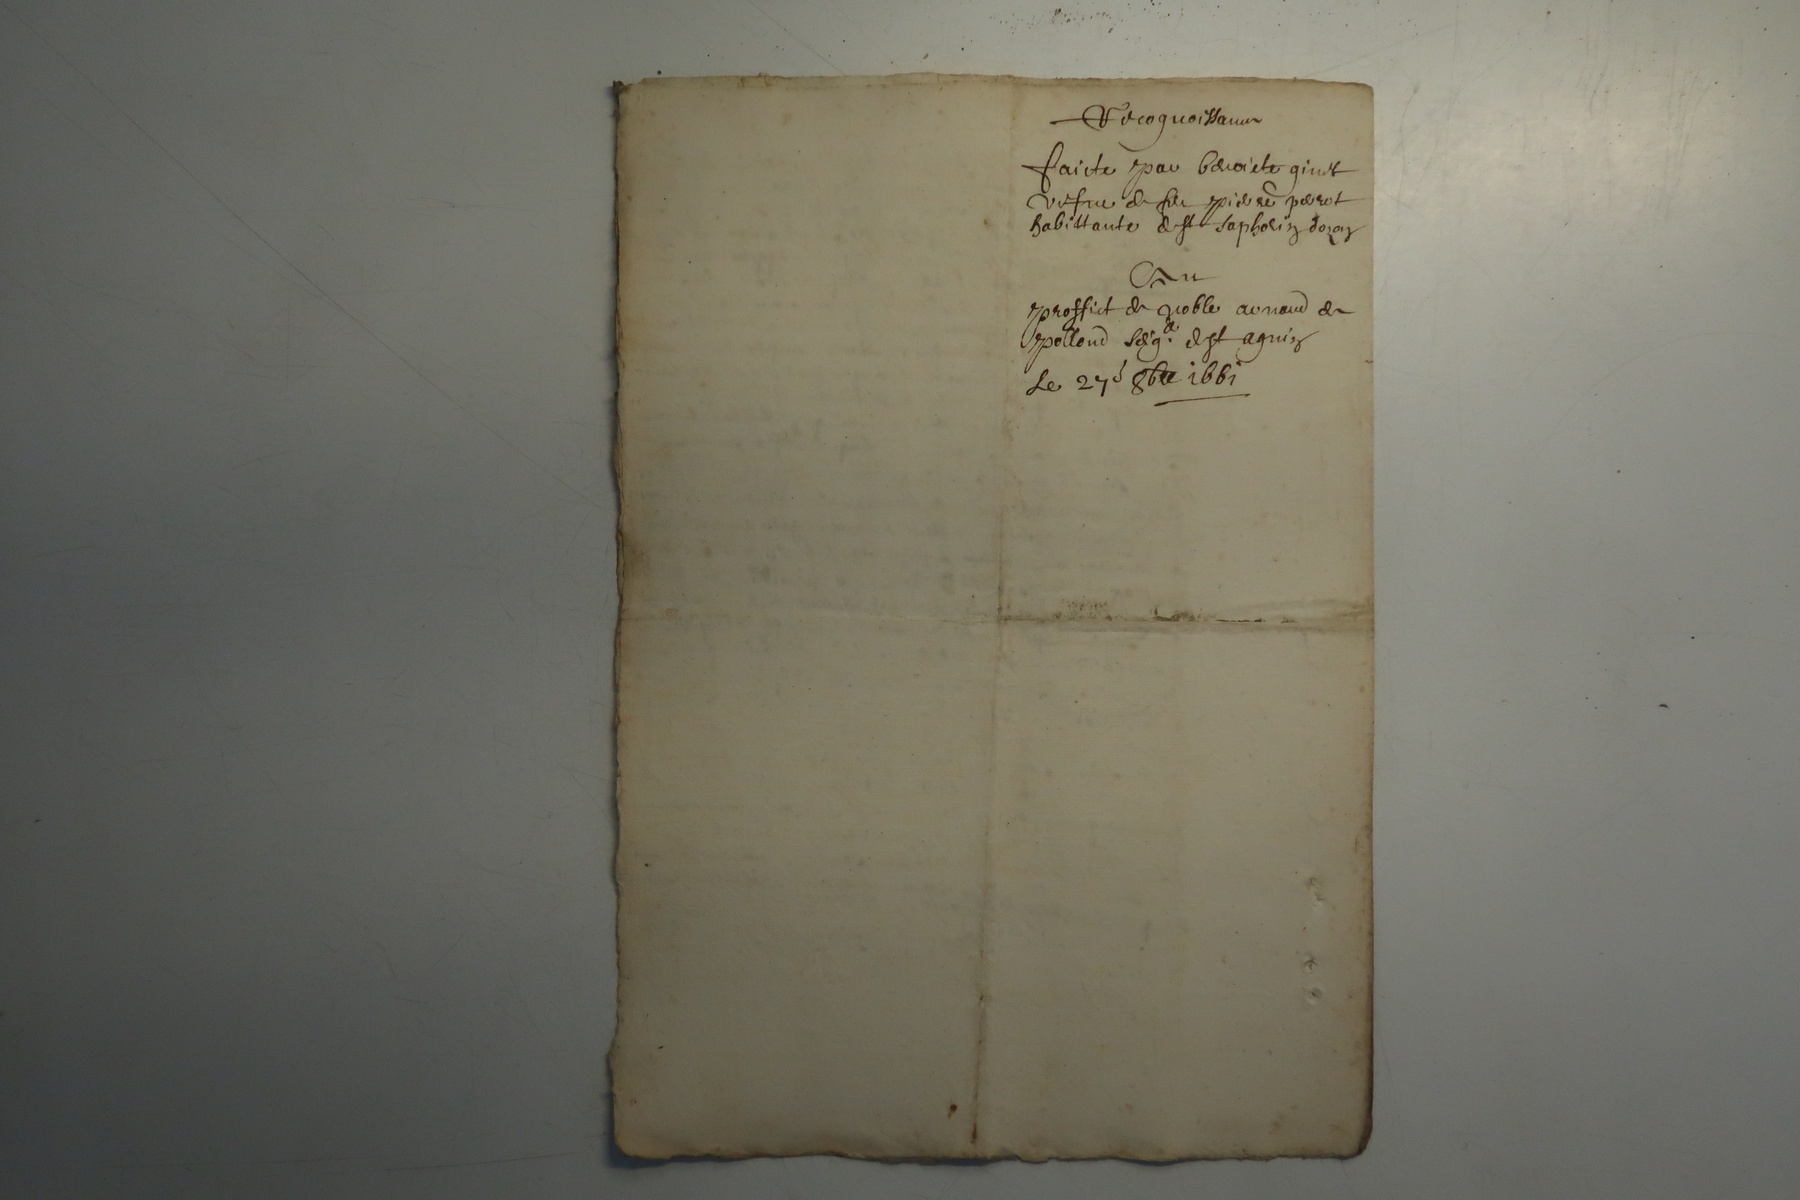 Recognoissance
faicte par benoiste ginet
vefue de feu pierre perrot
habittante de st saphorin dozon
Au
proffict de noble arnaud de
polloud seigr de st agnin
Le 27e 8bre 1661